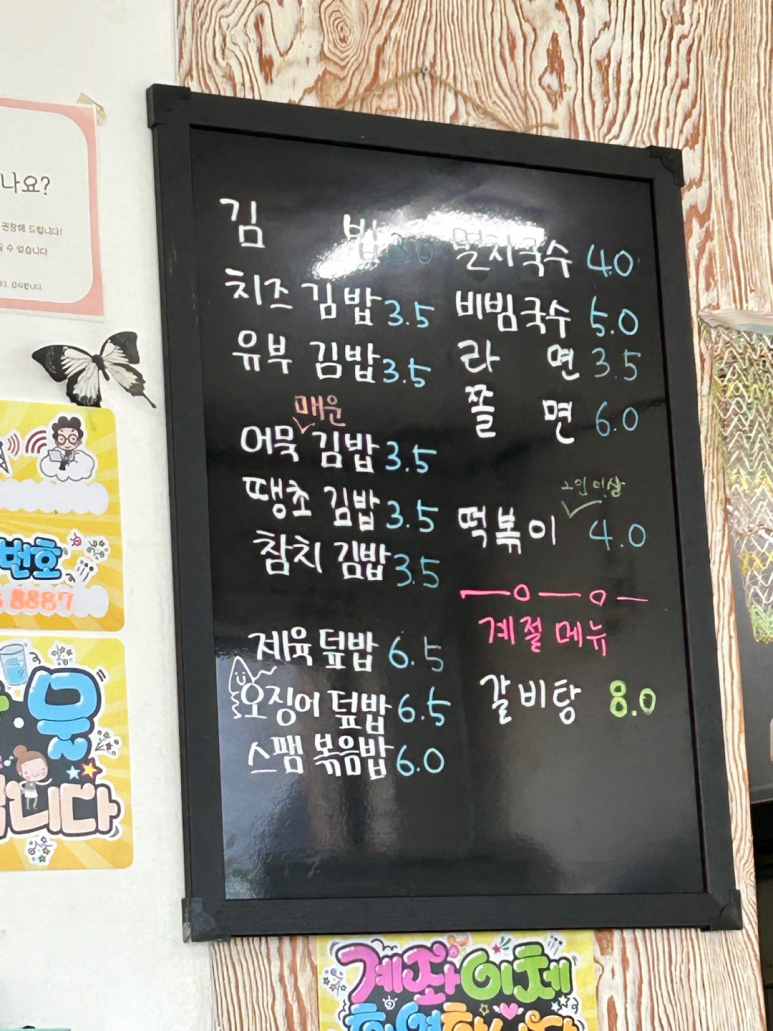 나요?
김 밥 3.0
치즈 김밥 3.5
유부 김밥 3.5
매운
어묵 김밥 3.5
땡초 김밥 3.5
참치 김밥 3.5
제육 덮밥 6.5
오징어 덮밥 6.5
스팸 볶음밥 6.0
멸치국수 4.0
비빔국수 5.0
라 면 3.5
쫄 면 6.0
2인 이상
떡볶이 4.0
계절 메뉴
갈비탕 8.0
번호
8887
물
니다
계좌이체